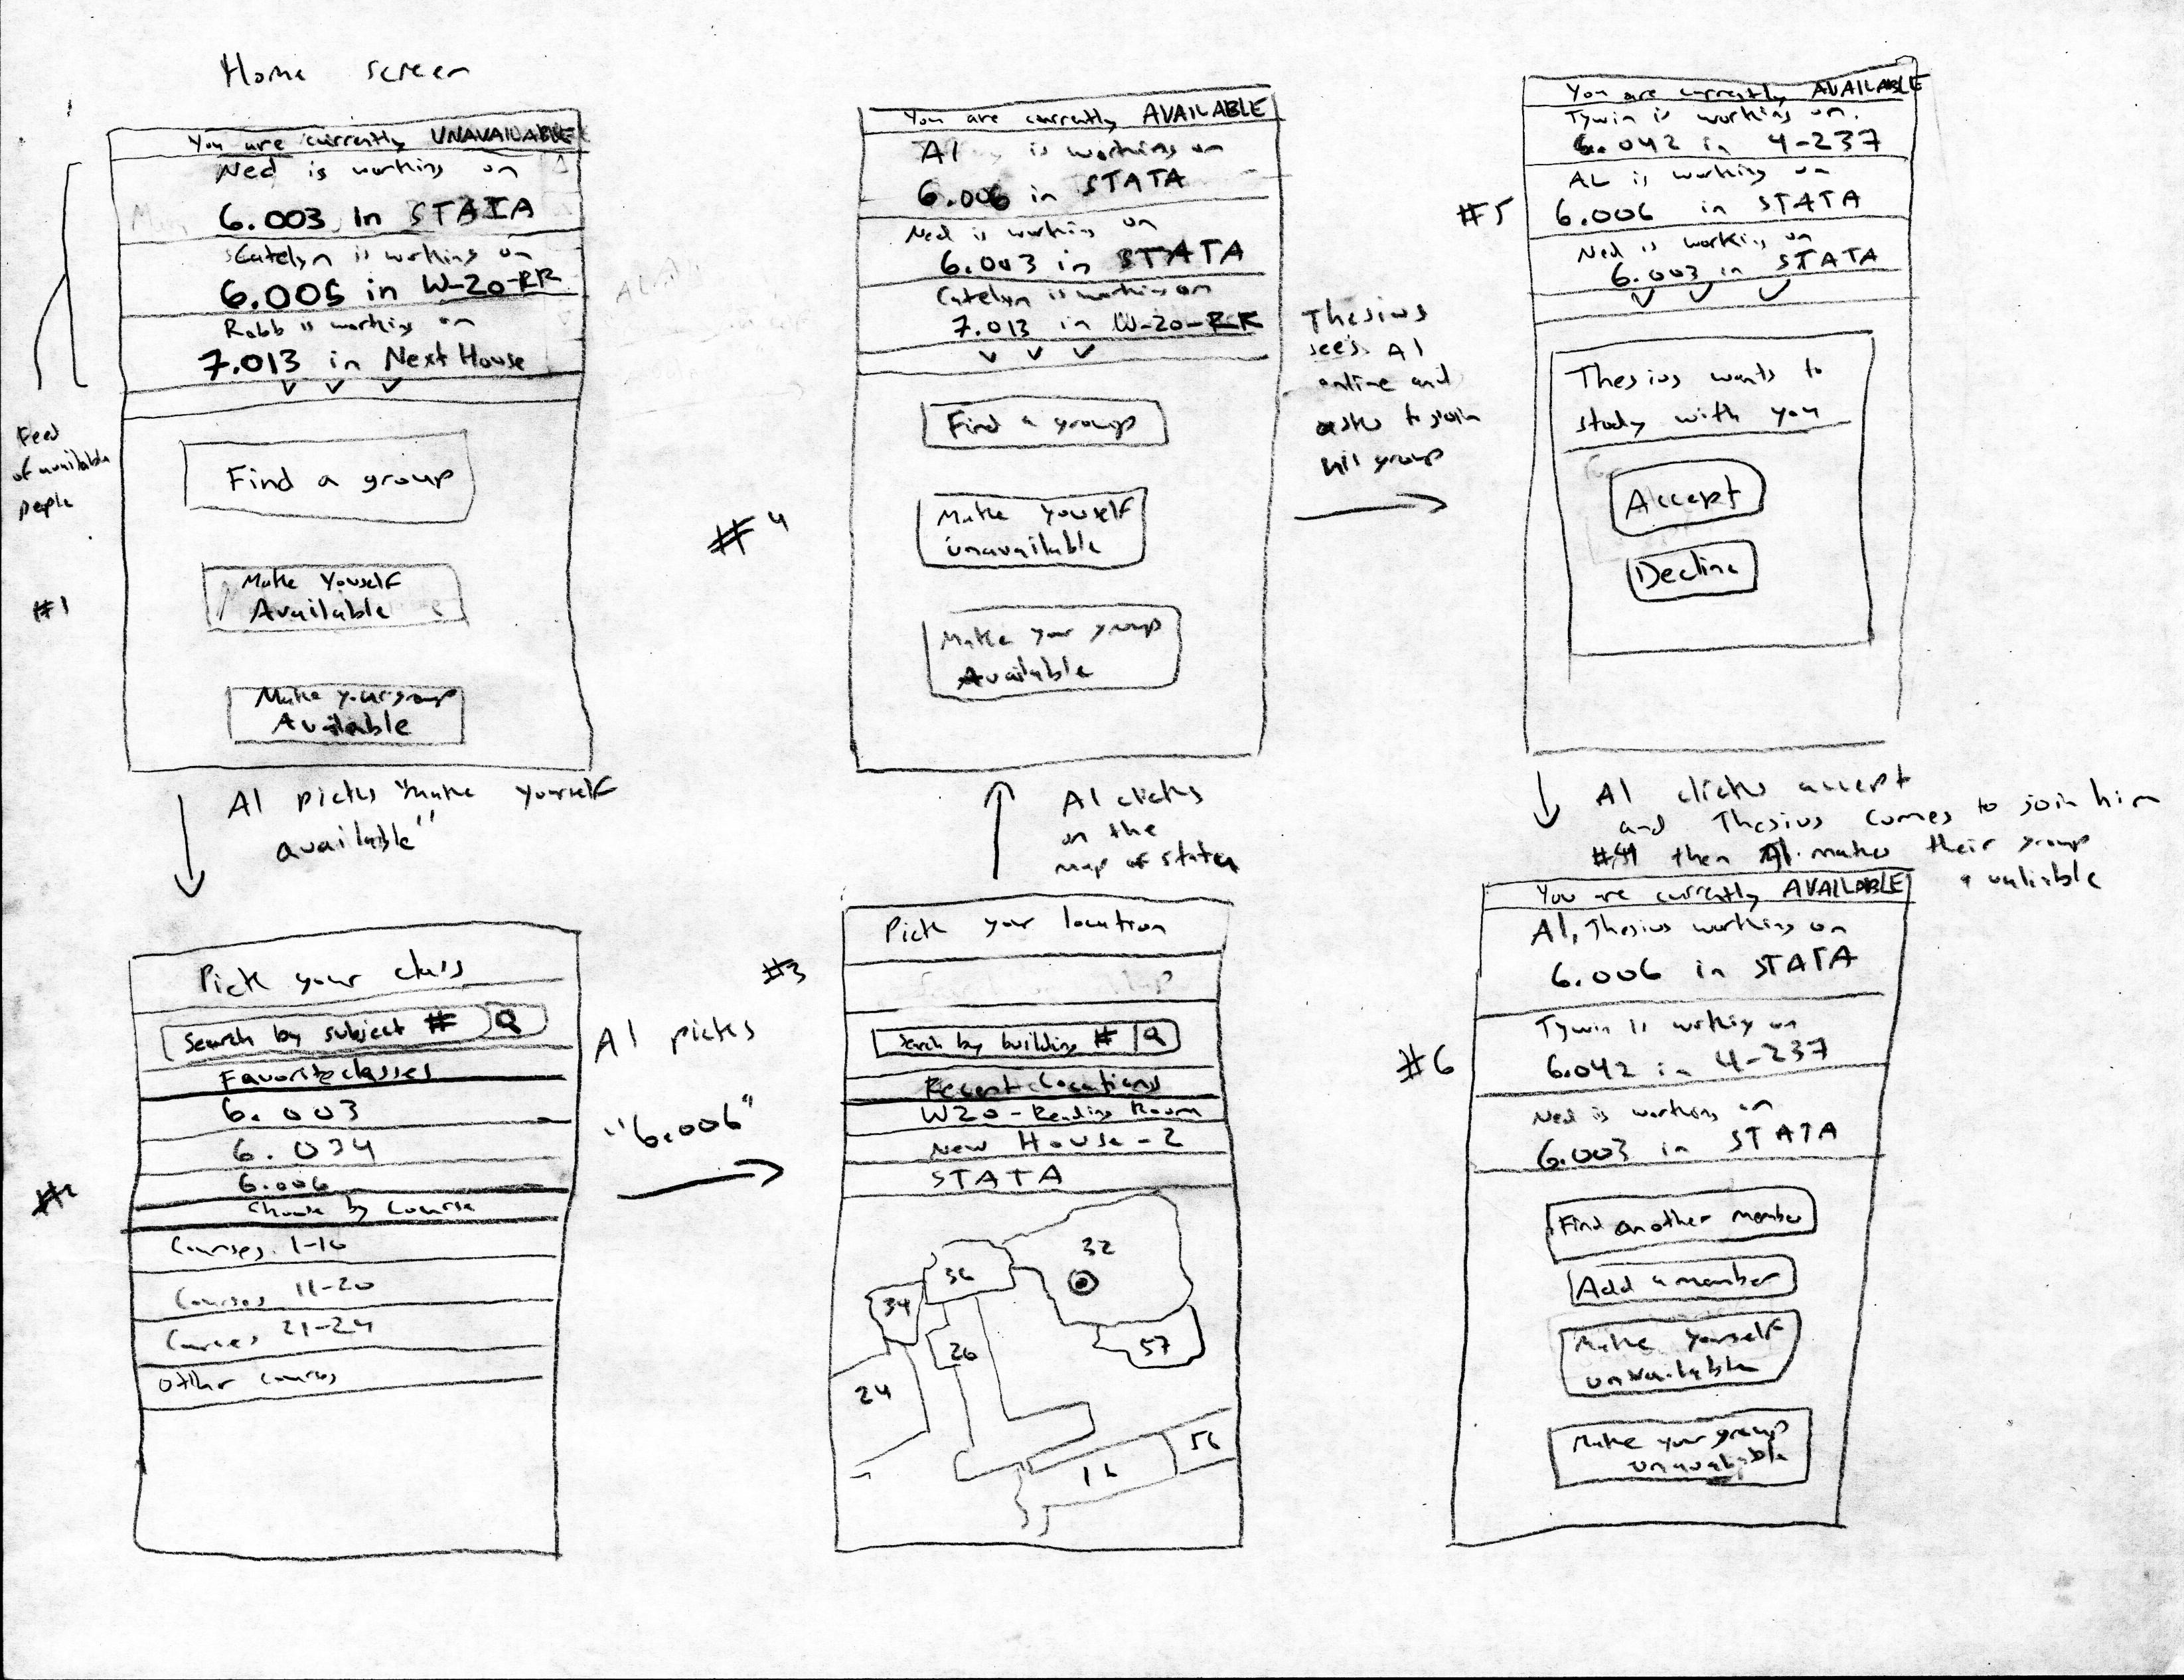 Home screen
You are currently UNAVAILABLE
Ned is working on
6.003 in STATA
Catelyn is working on
6.005 in W-20-RR
Robb is working on
7.013 in Next House
Feed
of available
people
Find a group
#1
Make Yourself
Available
Make your group
Available
Al picks "make yourself
available"
#2
Pick your class
Search by subject #
Favorite classes
6.003
6.034
6.006
Choose by Course
Courses 1-10
Courses 11-20
Courses 21-24
Other courses
Al picks
"6.006"
#3
Pick your location
Search by building #
Recent Locations
W20 - Reading Room
New House - 2
STATA
32
36
34
26
57
24
56
16
Al clicks
on the
map of stata
#4
You are currently AVAILABLE
Al is working on
6.006 in STATA
Ned is working on
6.003 in STATA
Catelyn is working on
7.013 in W-20-RR
Find a group
Make Yourself
unavailable
Make your group
Available
Thesius
sees Al
online and
asks to join
his group
#5
You are currently AVAILABLE
Tywin is working on
6.042 in 4-237
AL is working on
6.006 in STATA
Ned is working on
6.003 in STATA
Thesius wants to
study with you
Accept
Decline
Al clicks accept
and Thesius comes to join him
then Al makes their group
avaliable
#6
You are currently AVAILABLE
Al, Thesius working on
6.006 in STATA
Tywin is working on
6.042 in 4-237
Ned is working on
6.003 in STATA
Find another member
Add a member
Make Yourself
unavailable
Make your group
unavailable